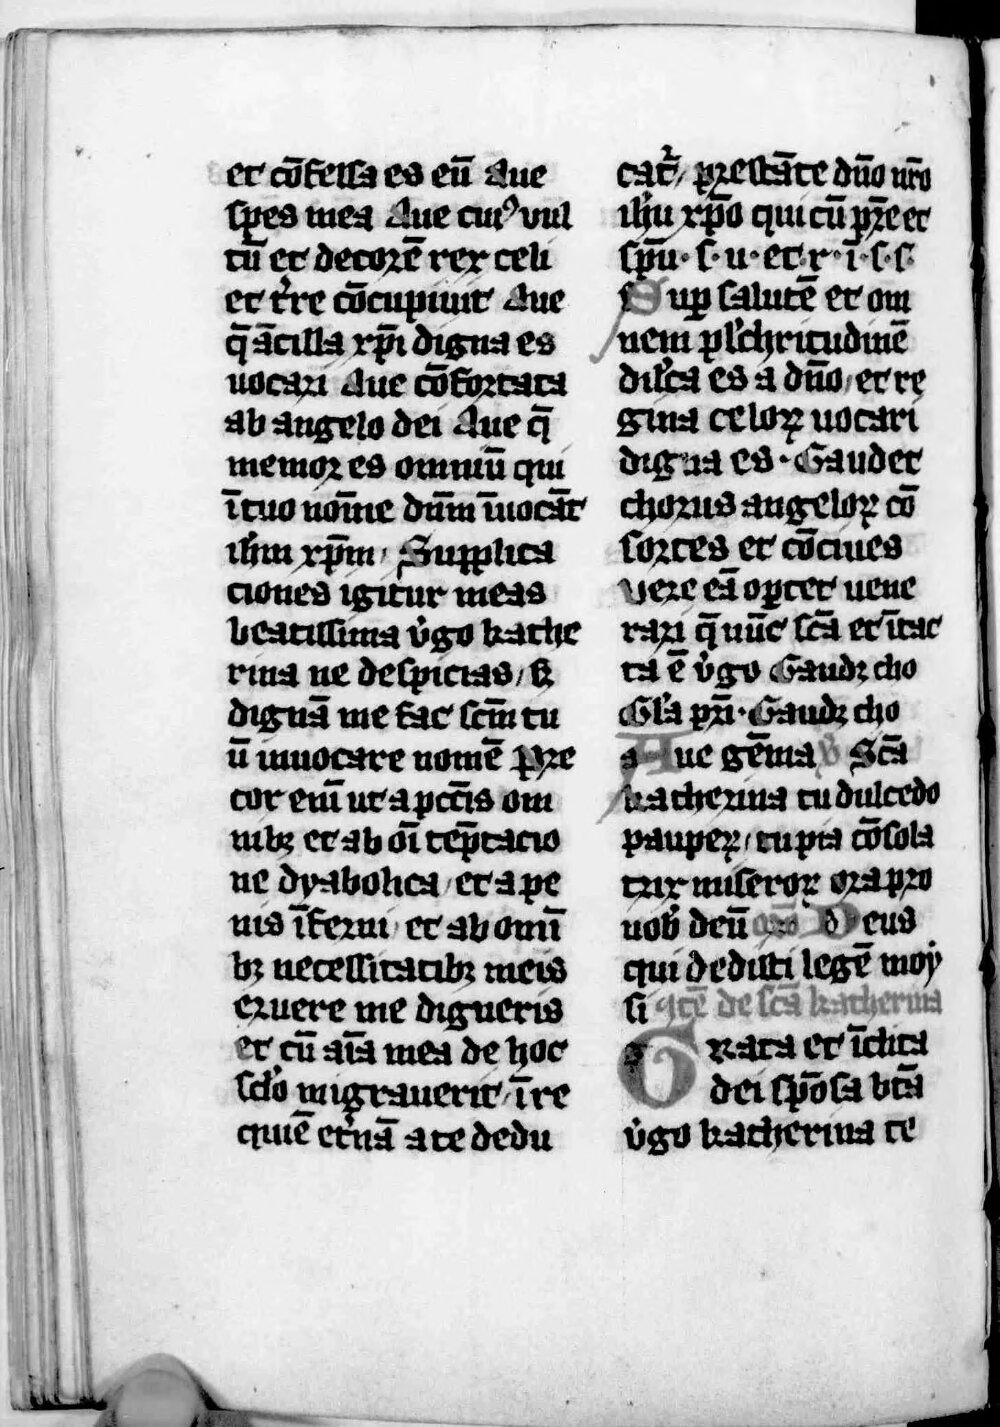 et cōfessa es eū Aue
spes mea Aue cuiꝰ vul
tū et decorē rex celi
et tr̄re cōcupiuit Aue
q̄ ācilla xp̄i digna es
uocari Aue cōfortata
ab angelo dei Aue q̄
memor es omniū qui
ī tuo noīne dn̄m īuocāt
ihm xp̄m / Supplica
ciones igitur meas
beatissima v̓go kathe
rina ne despicias / sꝫ
dignā me fac scm̄ tu
ū inuocare nomē Pre
cor eni ut a pctīs om
nibꝫ et ab oī tēptacio
ne dyabolica / et a pe
nis īferni / et ab omī
bꝫ necessitatibꝫ meis
eruere me digneris
et cū aīa mea de hoc
sclo migrauerit / ī re
quiē etnā a te dedu
cat̄ / prestāte dn̄o nr̄o
ihū xp̄o qui cū pr̄e et
sp̄u · s · u · et · r · ī · s · s ·
Suꝑ salutē et om
nem pl̓chritudinē
dil̓ca es a dn̄o / et re
gina celoꝝ uocari
digna es · Gaudet
chorus angeloꝝ cō
sortes et cōciues
Vere eā oꝑtet uene
rari q̄ nūc scā et ītac
ta ē v̓go Gaudꝫ cho
Gl̓a pr̄i · Gaudꝫ cho
Aue gēma V̓ Scā
katherina tu dulcedo
pauꝑeꝝ / tu pia cōsola
trix miseroꝝ ora pro
nob̓ deū orō Deus
qui dedisti legē moy
si Itē de scā katherina
Grata et īclita
dei spōsa btā
v̓go katherina te